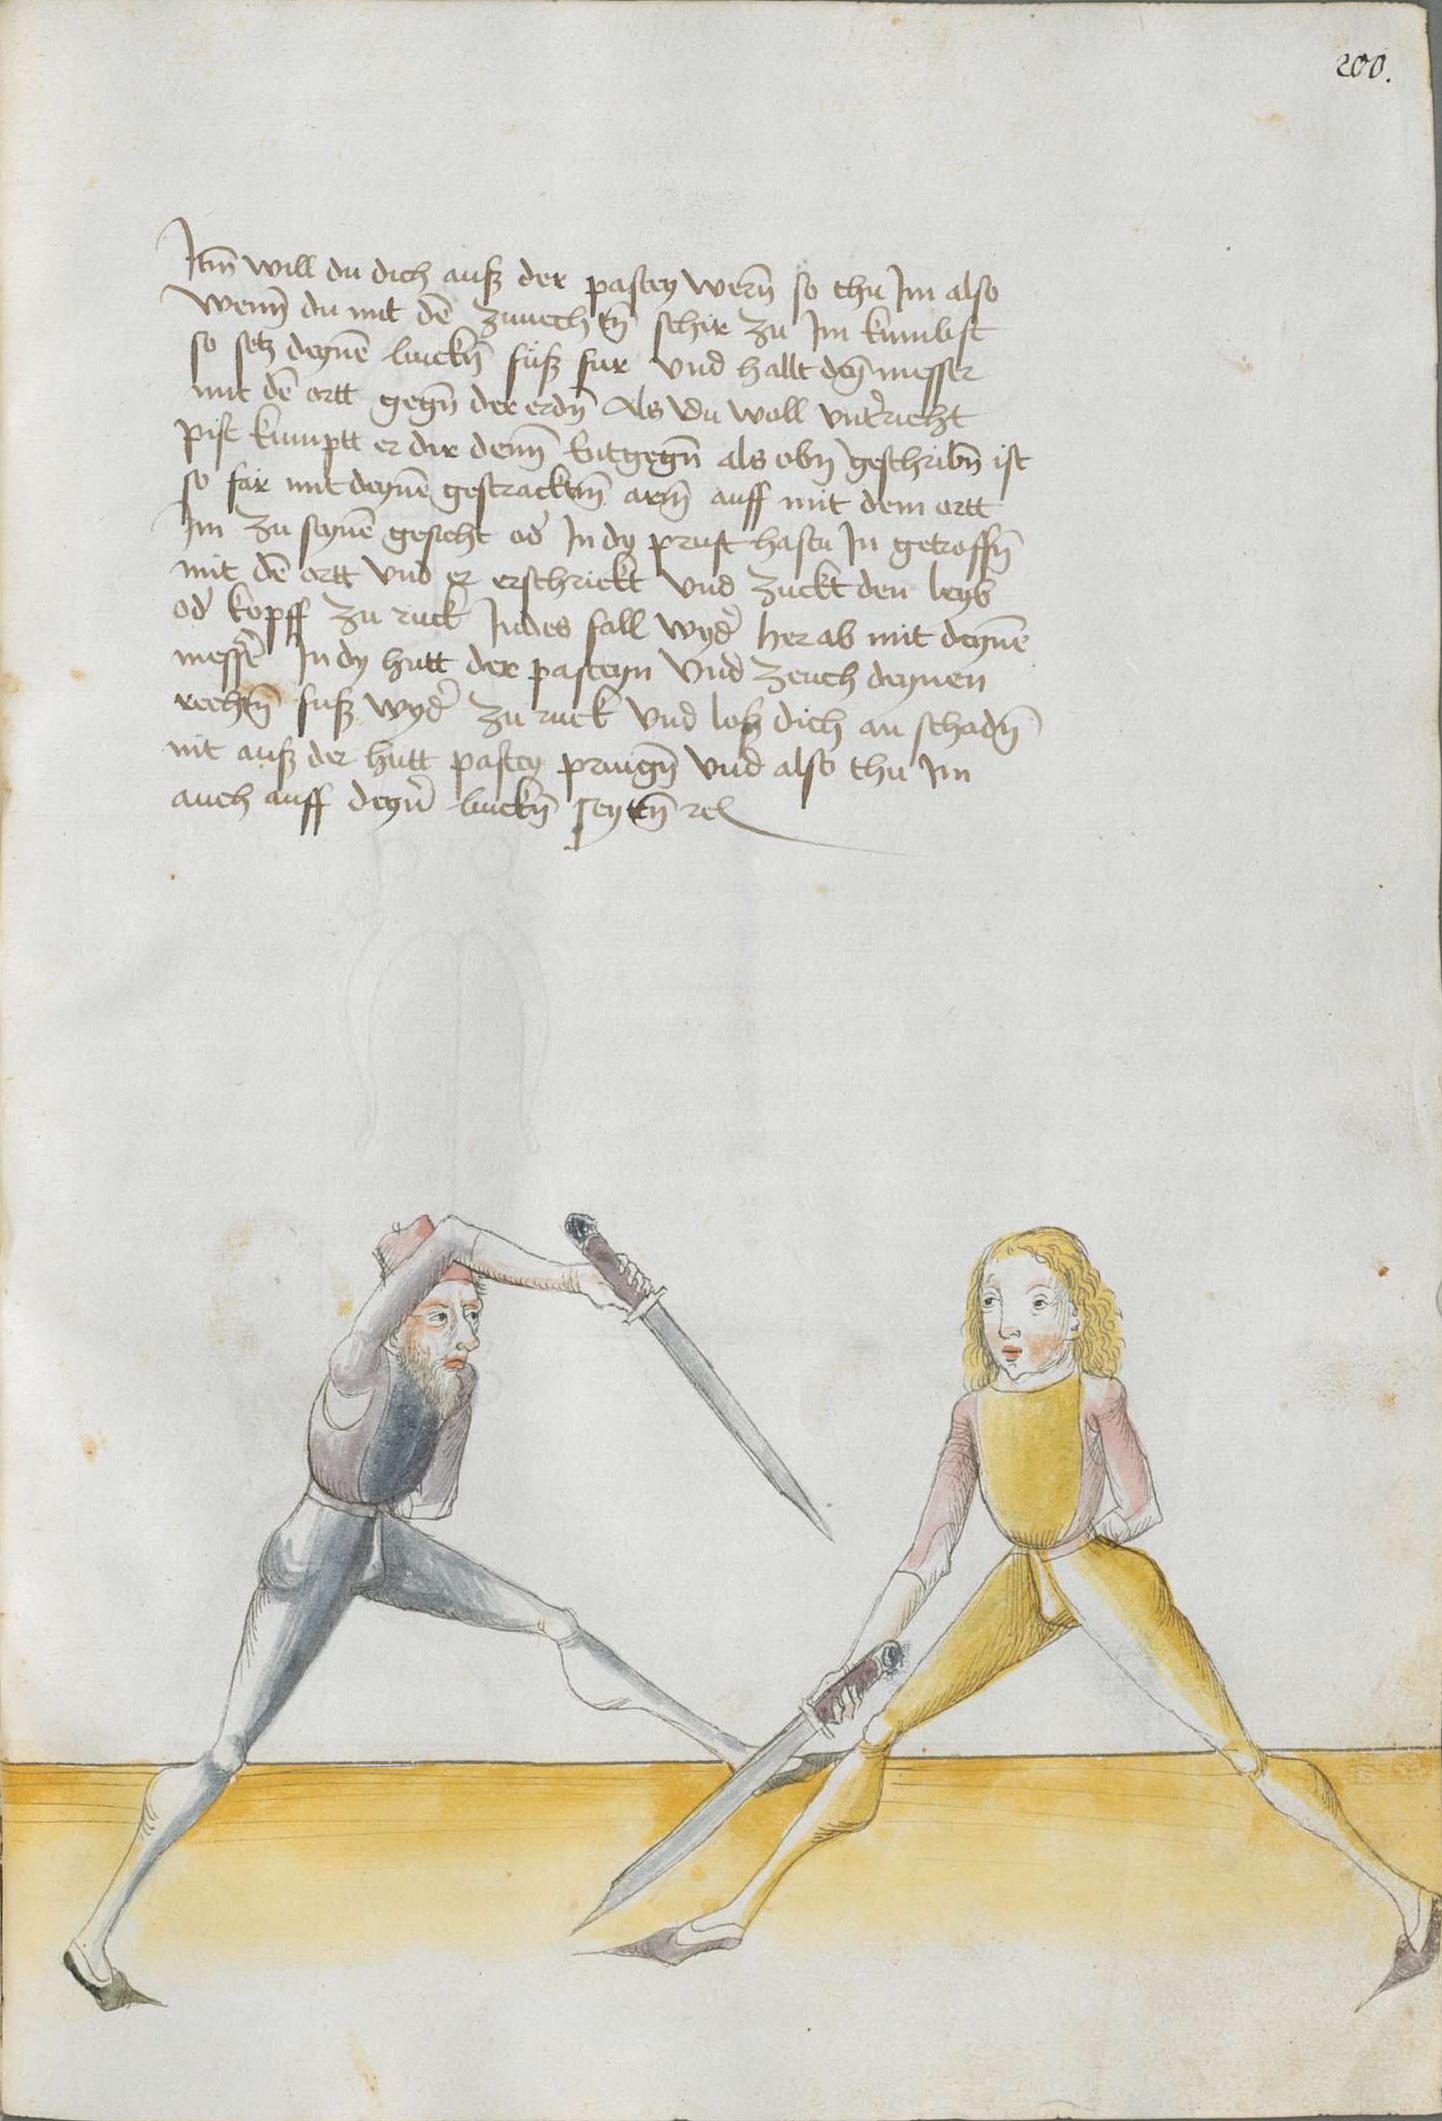 200.
Itm̄ will du dich auß der pastey wern̄ so thu Im also
wenn̄ du mit dē zuuechtn̄ schir zu Im kumbst
so setz deynē linckn̄ fuß fur vnd hallt den̄ messer
mit dē ortt gegn̄ der erdn̄ Als du woll vntʼricht
pist kumptt er dir denn̄ Entgegn̄ als obn̄ geschribn̄ ist
so far mit deynē gestracktm̄ arm̄ auff mit dem ortt
Im zu seynē gesicht odʼ In dy prust hastu In getroffn̄
mit dē ortt vnd er erschrickt vnd zuckt den leyb
odʼ kopff zu ruck Indes fall wydʼ her ab mit deynē
messʼe In dy hutt der pasteyn vnd zeuch deynen
rechtn̄ fuß wydʼ zu ruck vnd loß dich an schadn̄
nit auß der hutt pastey pringn̄ vnd also thu Im
auch auff deynʼ linckn̄ seyttn̄ rc